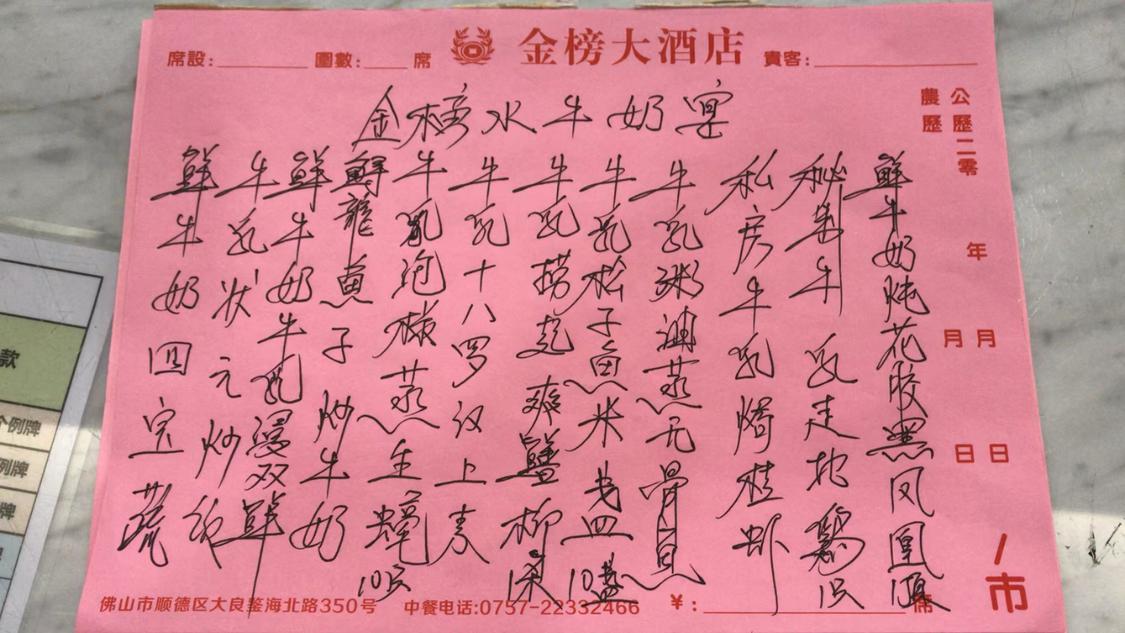 席設：
圍數：
席
金榜大酒店
貴客：
公歷二零
農歷
年
月 月
日 日
/市
金榜水牛奶宴
鮮牛奶炖花胶黑凤凰
秘制牛乳走地鷄
私房牛乳焗桂虾
牛乳粥油蒸无骨
牛乳松子鱼米
牛乳捞起爽鱔柳
牛乳十八罗汉上素
牛乳泡椒蒸生蠔
鱼子炒牛奶
鮮牛奶牛乳浸双鮮
牛乳状元炒饭
鮮牛奶四宝蔬
佛山市顺德区大良鉴海北路350号
中餐电话:0757-22332466
￥:
席
例牌
例牌
牌
款